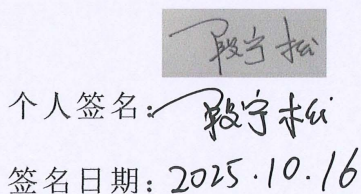 段宁松
个人签名：段宁松
签名日期：2025.10.16